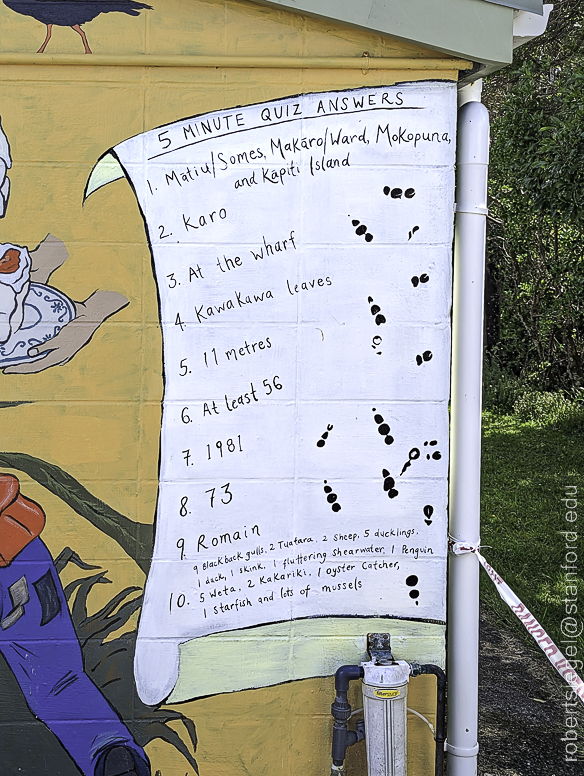 5 MINUTE QUIZ ANSWERS
1. Matiu/Somes, Makāro/Ward, Mokopuna,
and Kāpiti Island
2. Karo
3. At the wharf
4. Kawakawa leaves
5. 11 metres
6. At least 56
7. 1981
8. 73
9. Romain
9 Black back gulls, 2 Tuatara, 2 Sheep, 5 ducklings,
1 duck, 1 skink, 1 fluttering shearwater, 1 Penguin
10. 5 Weta, 2 Kakariki, 1 Oyster Catcher,
1 starfish and lots of mussels
robertsiegel@stanford.edu